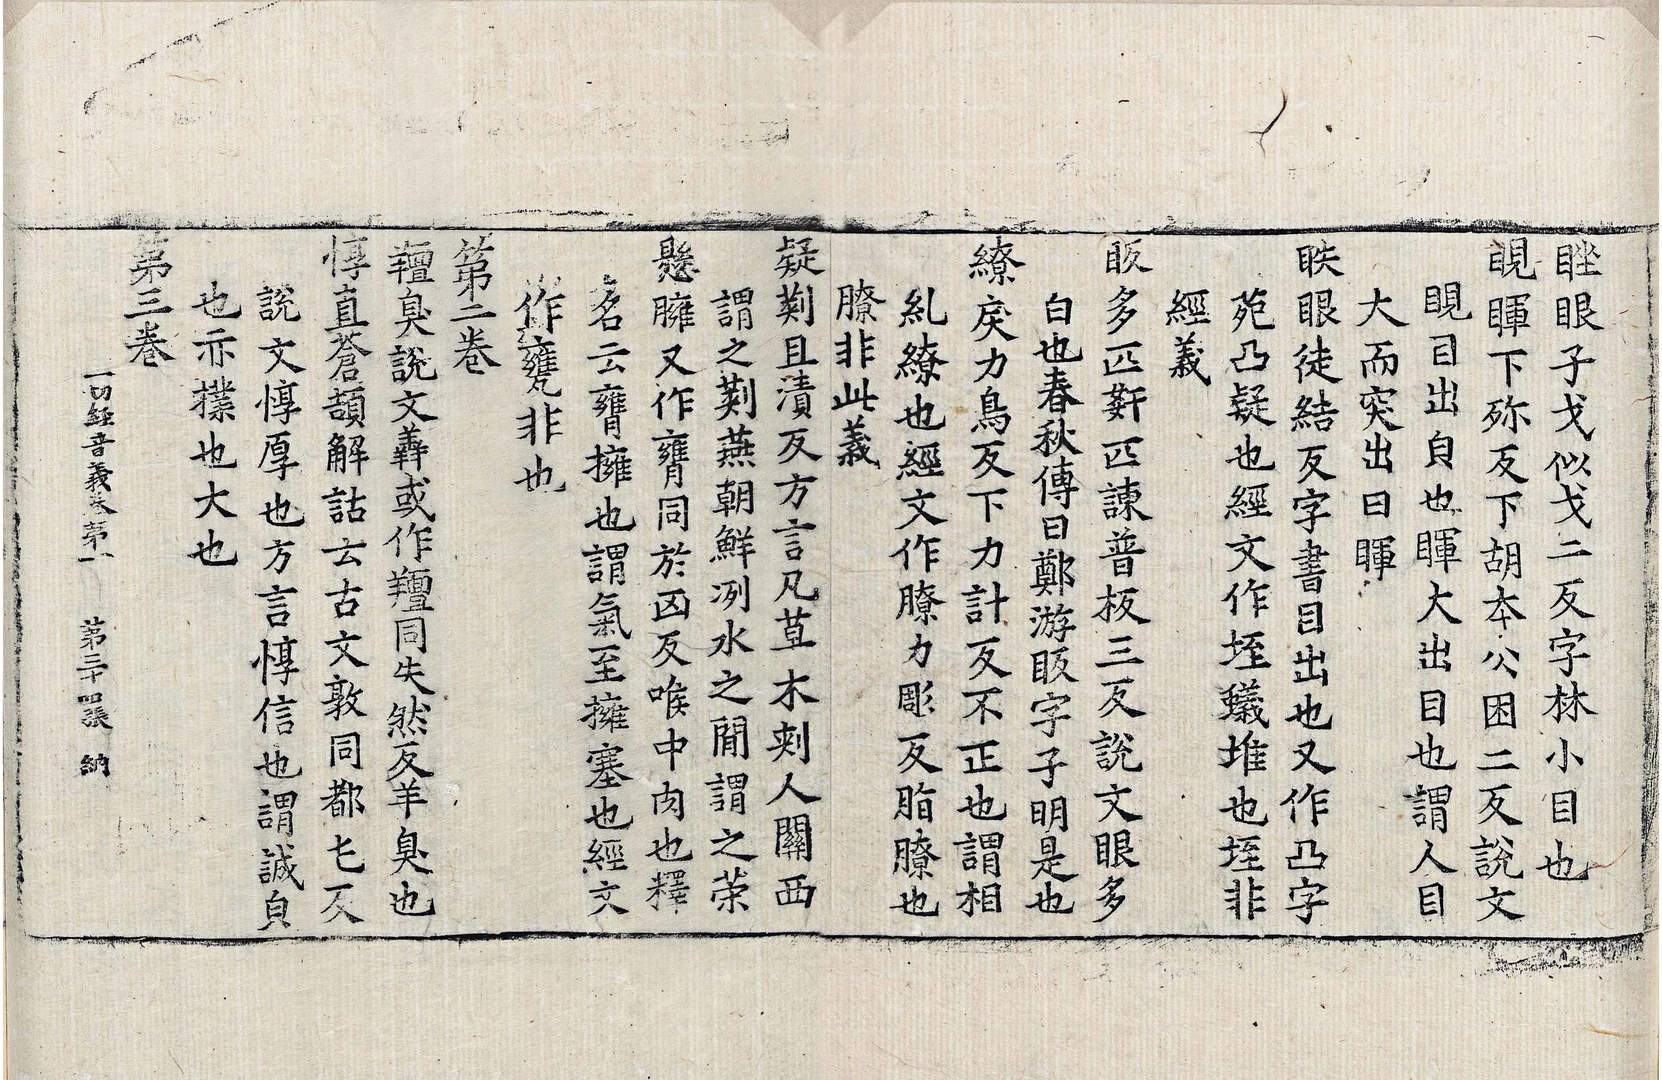 睉眼子戈似戈二反字林小目也
睍睴下殄反下胡本公困二反說文
睍目出皃也睴大出目也謂人目
大而突出曰睴
眣眼徒結反字書目出也又作凸字
苑凸疑也經文作垤蟻堆也垤非
經義
眅多匹姧匹諫普板三反說文眼多
白也春秋傳曰鄭游眅字子明是也
繚戾力鳥反下力計反不正也謂相
糺繚也經文作膫力彫反脂膫也
膫非此義
疑㓨且漬反方言凡草木刺人關西
謂之㓨燕朝鮮洌水之間謂之茦
懸臃又作癰同於凶反喉中肉也釋
名云癰擁也謂氣至擁塞也經文
作甕非也
第二卷
羶臭說文羴或作羶同失然反羊臭也
惇直蒼頡解詁云古文敦同都屯反
說文惇厚也方言惇信也謂誠皃
也亦樸也大也
第三卷
一切經音義卷第一 第三十四張 納